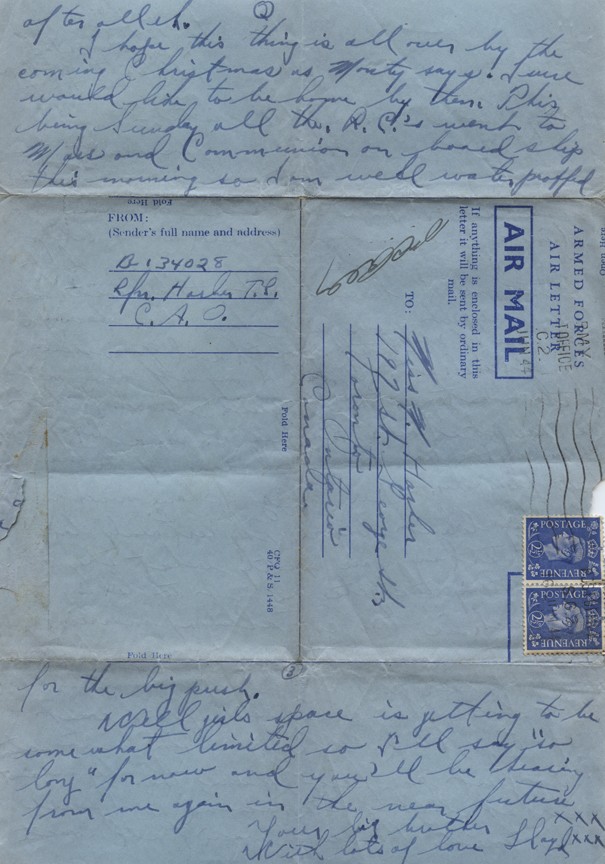 after all eh. 2
I hope this thing is all over by the
coming Christmas as Monty says. Sure
would like to be home by then. This
being Sunday all the R.C.'s went to
Mass and Communion on board ship
this morning so I am well water proffed
Fold Here
FROM:
(Sender's full name and address)
B-134028
Rfn. T.L.
C.A.O.
Fold Here
CPQ 11
40 P. & S. 1448
Fold Here
Open Here
ARMED FORCES
AIR LETTER
OFFICE
C2.
JUN 44
AIR MAIL
If anything is enclosed in this
letter it will be sent by ordinary
mail.
TO:
Miss M.
St. George St.
Toronto
Ontario
Canada
POSTAGE
2½
REVENUE
POSTAGE
2½
REVENUE
3
for the big push.
Well girls space is getting to be
somewhat limited so I'll say "so
long" for now and you'll be hearing
from me again in the near future
Your big brother XXX
With lots of love Lloyd XXX